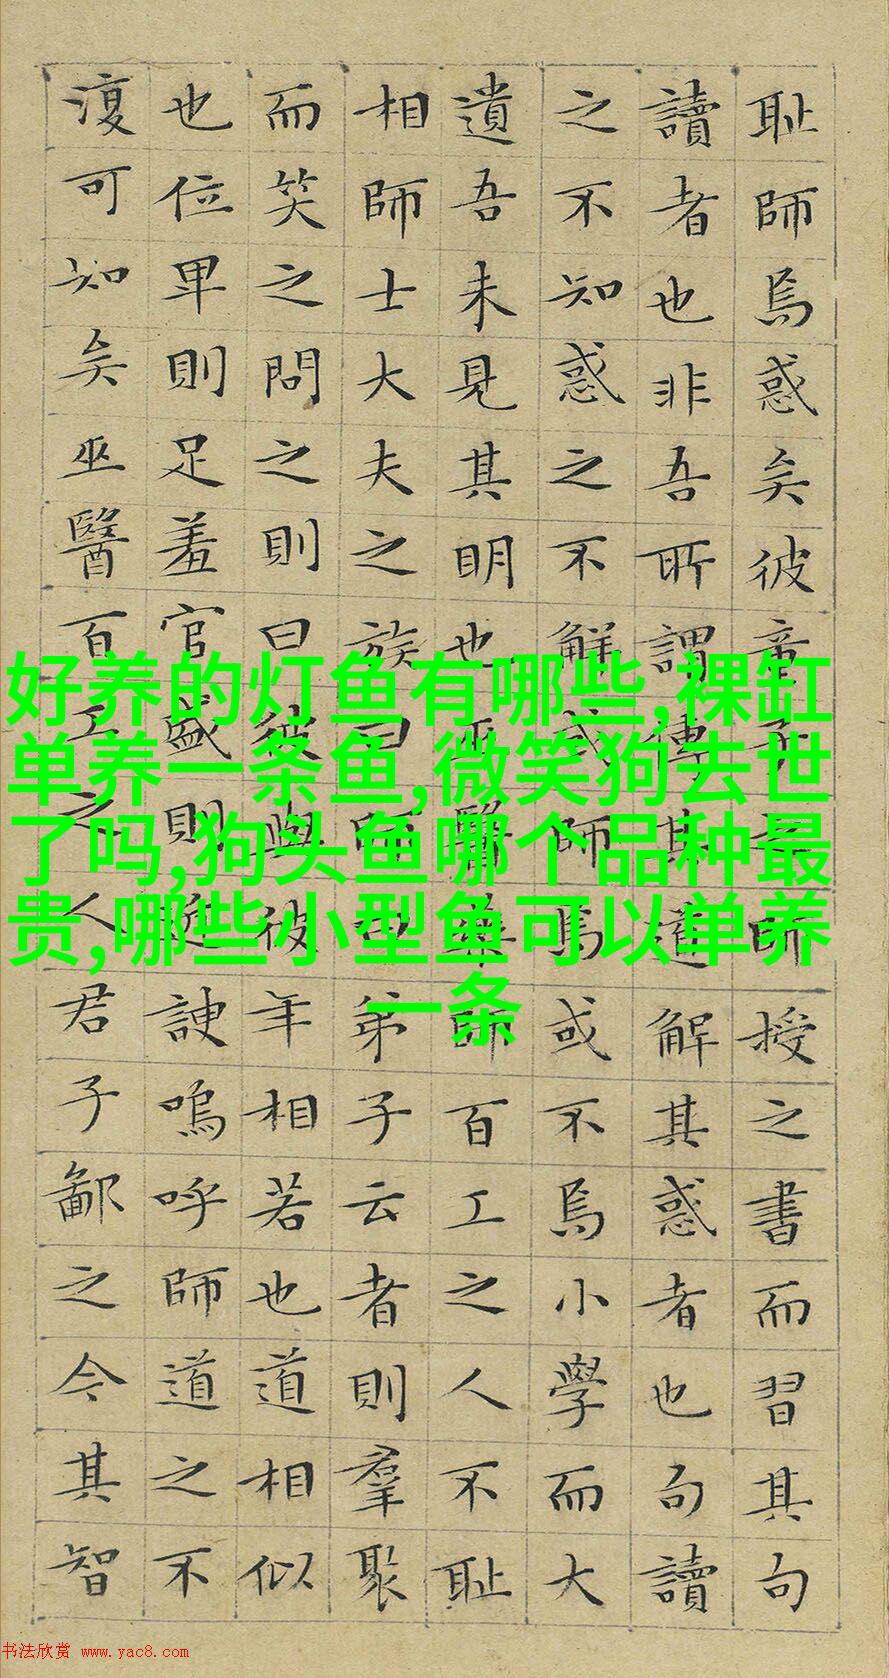 耻師焉惑矣彼童子之師授之書而習其句
讀者也非吾所謂傳其道解其惑者也句讀
之不知惑之不解或師焉或不焉小學而大
遺吾未見其明也巫醫樂師百工之人不耻
相師士大夫之族曰師曰弟子云者則羣聚
而笑之問之則曰彼與彼年相若也道相似
也位卑則足羞官盛則近諛嗚呼師道之不
復可知矣巫醫百工之人君子鄙之今其智
好养的灯鱼有哪些,裸缸
单养一条鱼,微笑狗去世
了吗,狗头鱼哪个品种最
贵,哪些小型鱼可以单养
一条
书法欣赏 www.yac8.com